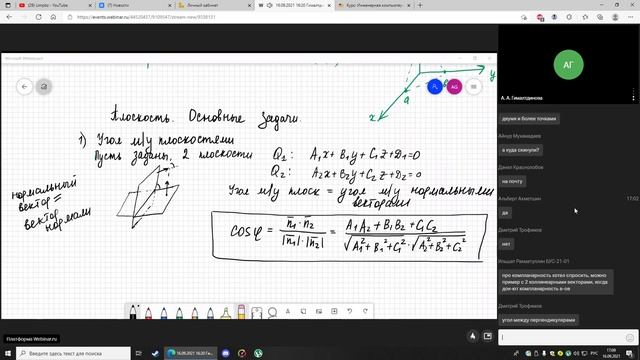 (28) Limpto - YouTube
(7) Новости
Личный кабинет
16.09.2021 16:20 Гимал
Курс: Инженерная компьютер
https://events.webinar.ru/44520437/9109547/stream-new/9338131
Microsoft Whiteboard
AG
y
x
a
Плоскость. Основные задачи.
1) Угол м/у плоскостями
Пусть заданы 2 плоскости Q1: A1x+B1y+C1z+D1=0
Q2: A2x+B2y+C2z+D2=0
Угол м/у плоск = угол м/у нормальными векторами
нормальный
вектор =
вектор
нормали
cos φ = n1 · n2 / |n1| · |n2| = A1A2 + B1B2 + C1C2 / √A1²+B1²+C1² · √A2²+B2²+C2²
АГ
А. А. Гималтдинова
двумя и более точками
Айнур Мухамадиев
а куда скинули?
Данил Краснолобов
на почту
Альберт Ахметшин
17:02
да
Дмитрий Трофимов
нет
Ильшат Рахматуллин БУС-21-01
про компланарность хотел спросить, можно
пример с 2 коллинеарными векторами, когда
док-ют компланарность в-ов
Дмитрий Трофимов
угол между перпендикулярами
Платформа Webinar.ru
Введите здесь текст для поиска
16.09.2021 16:20 Ги
РУС
17:09
16.09.2021